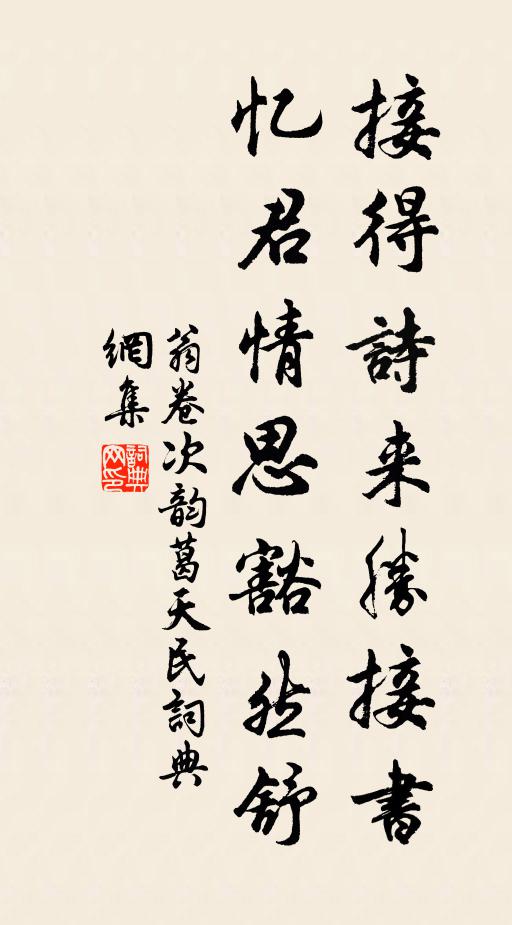 接得詩来勝接書
忆君情思豁然舒
翁卷次韵葛天民詞典
網集
詞典
网印